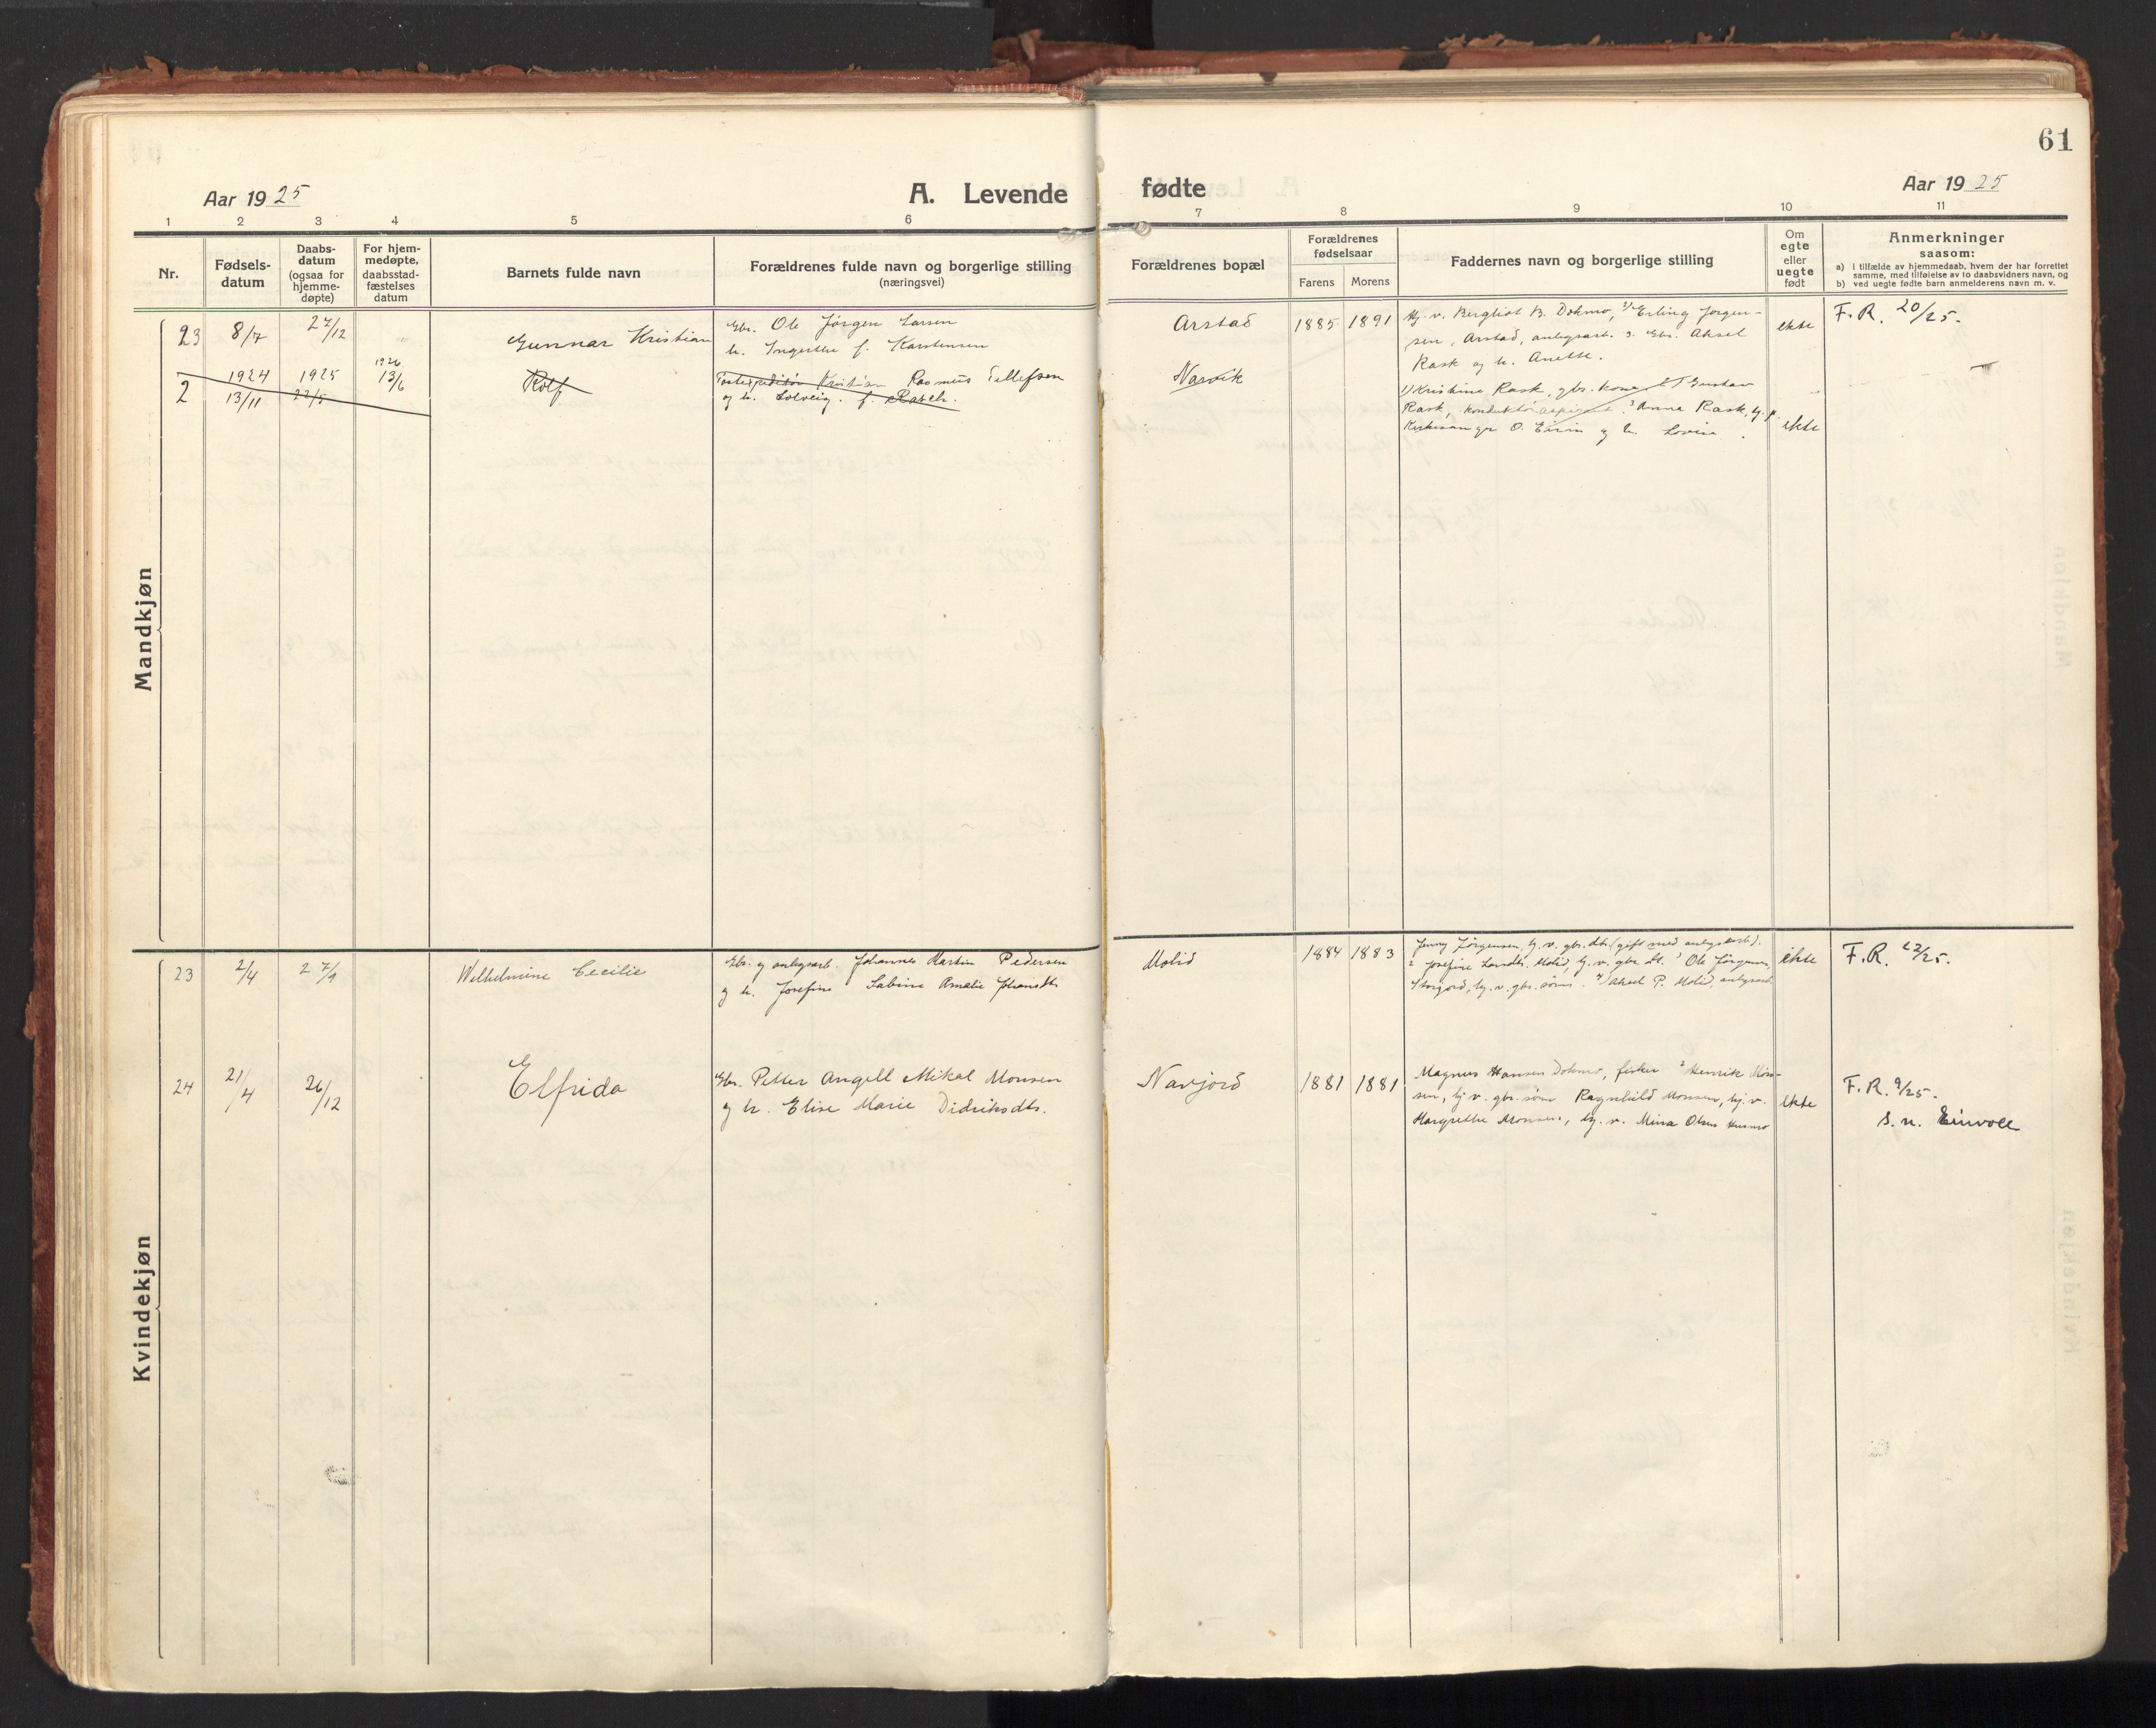 61
Aar 1925
A. Levende
fødte
Aar 1925
1 2 3 4 5 6 7 8 9 10 11
Nr.
Fødsels-
datum
Daabs-
datum
(ogsaa for
hjemme-
døpte)
For hjem-
medøpte,
daabsstad-
fæstelses
datum
Barnets fulde navn
Forældrenes fulde navn og borgerlige stilling
(næringsvei)
Forældrenes bopæl
Forældrenes
fødselsaar
Farens Morens
Faddernes navn og borgerlige stilling
Om
egte
eller
uegte
født
Anmerkninger
saasom:
a) i tilfælde av hjemmedaab, hvem der har forrettet
samme, med tilføielse av to daabsvidners navn, og
b) ved uegte fødte barn anmelderens navn m. v.
Mandkjøn
23 8/7 27/12 Gunnar Kristian
Gbr. Ole Jørgen Larsen
h. Ingerthe f. Karstensen
Arstad 1885 1891
Hj. v. Bergliot B. Dokmo, 2) Erling Jørgen-
sen, Arstad, anlegsarb. 3. Gbr. Aksel
Rask og h. Anette.
ekte
F. R. 20/25.
2 1924 13/11 1925 22/5 1926 13/6 Rolf
Kristian Rasmus Tellefsen
og h. Solveig. f. Rasch.
Narvik
1) Kristine Rask, gbr. kone 2) Gustav
Rask, konduktøraspirant. 3 Anna Rask, hj. p.
Kirkesanger O. og h. Lovise.
ekte
Kvindekjøn
23 2/4 27/9 Welhelmine Cecilie
Gbr. og anlegsarb. Johannes Martin Pedersen
og h. Josefine Sabine Amalie
Molid 1884 1883
Jenny Jørgensen, hj. v. gbr. dtr. (gift med anlegsarb).
2 Josefine Larsdtr. Molid, hj. v. gbr. dt. 3 Ole Jørgensen,
Storjord, hj. v. gbr. sønn. 4) Aksel P. Molid, anlegsarb.
ekte
F. R. 22/25.
24 21/4 26/12 Elfrida
Gbr. Petter Angell Mikal Monsen
og h. Elise Marie Didriksdtr.
Navjord 1881 1881
Magnus Hansen Dokmo, fisker 2 Henrik Mon-
sen, hj. v. gbr. sønn Ragnhild Monsen, hj. v.
Margrethe Monsen, hj. v. Mina Olsen
ekte
F. R. 9/25.
s. n. Einvoll